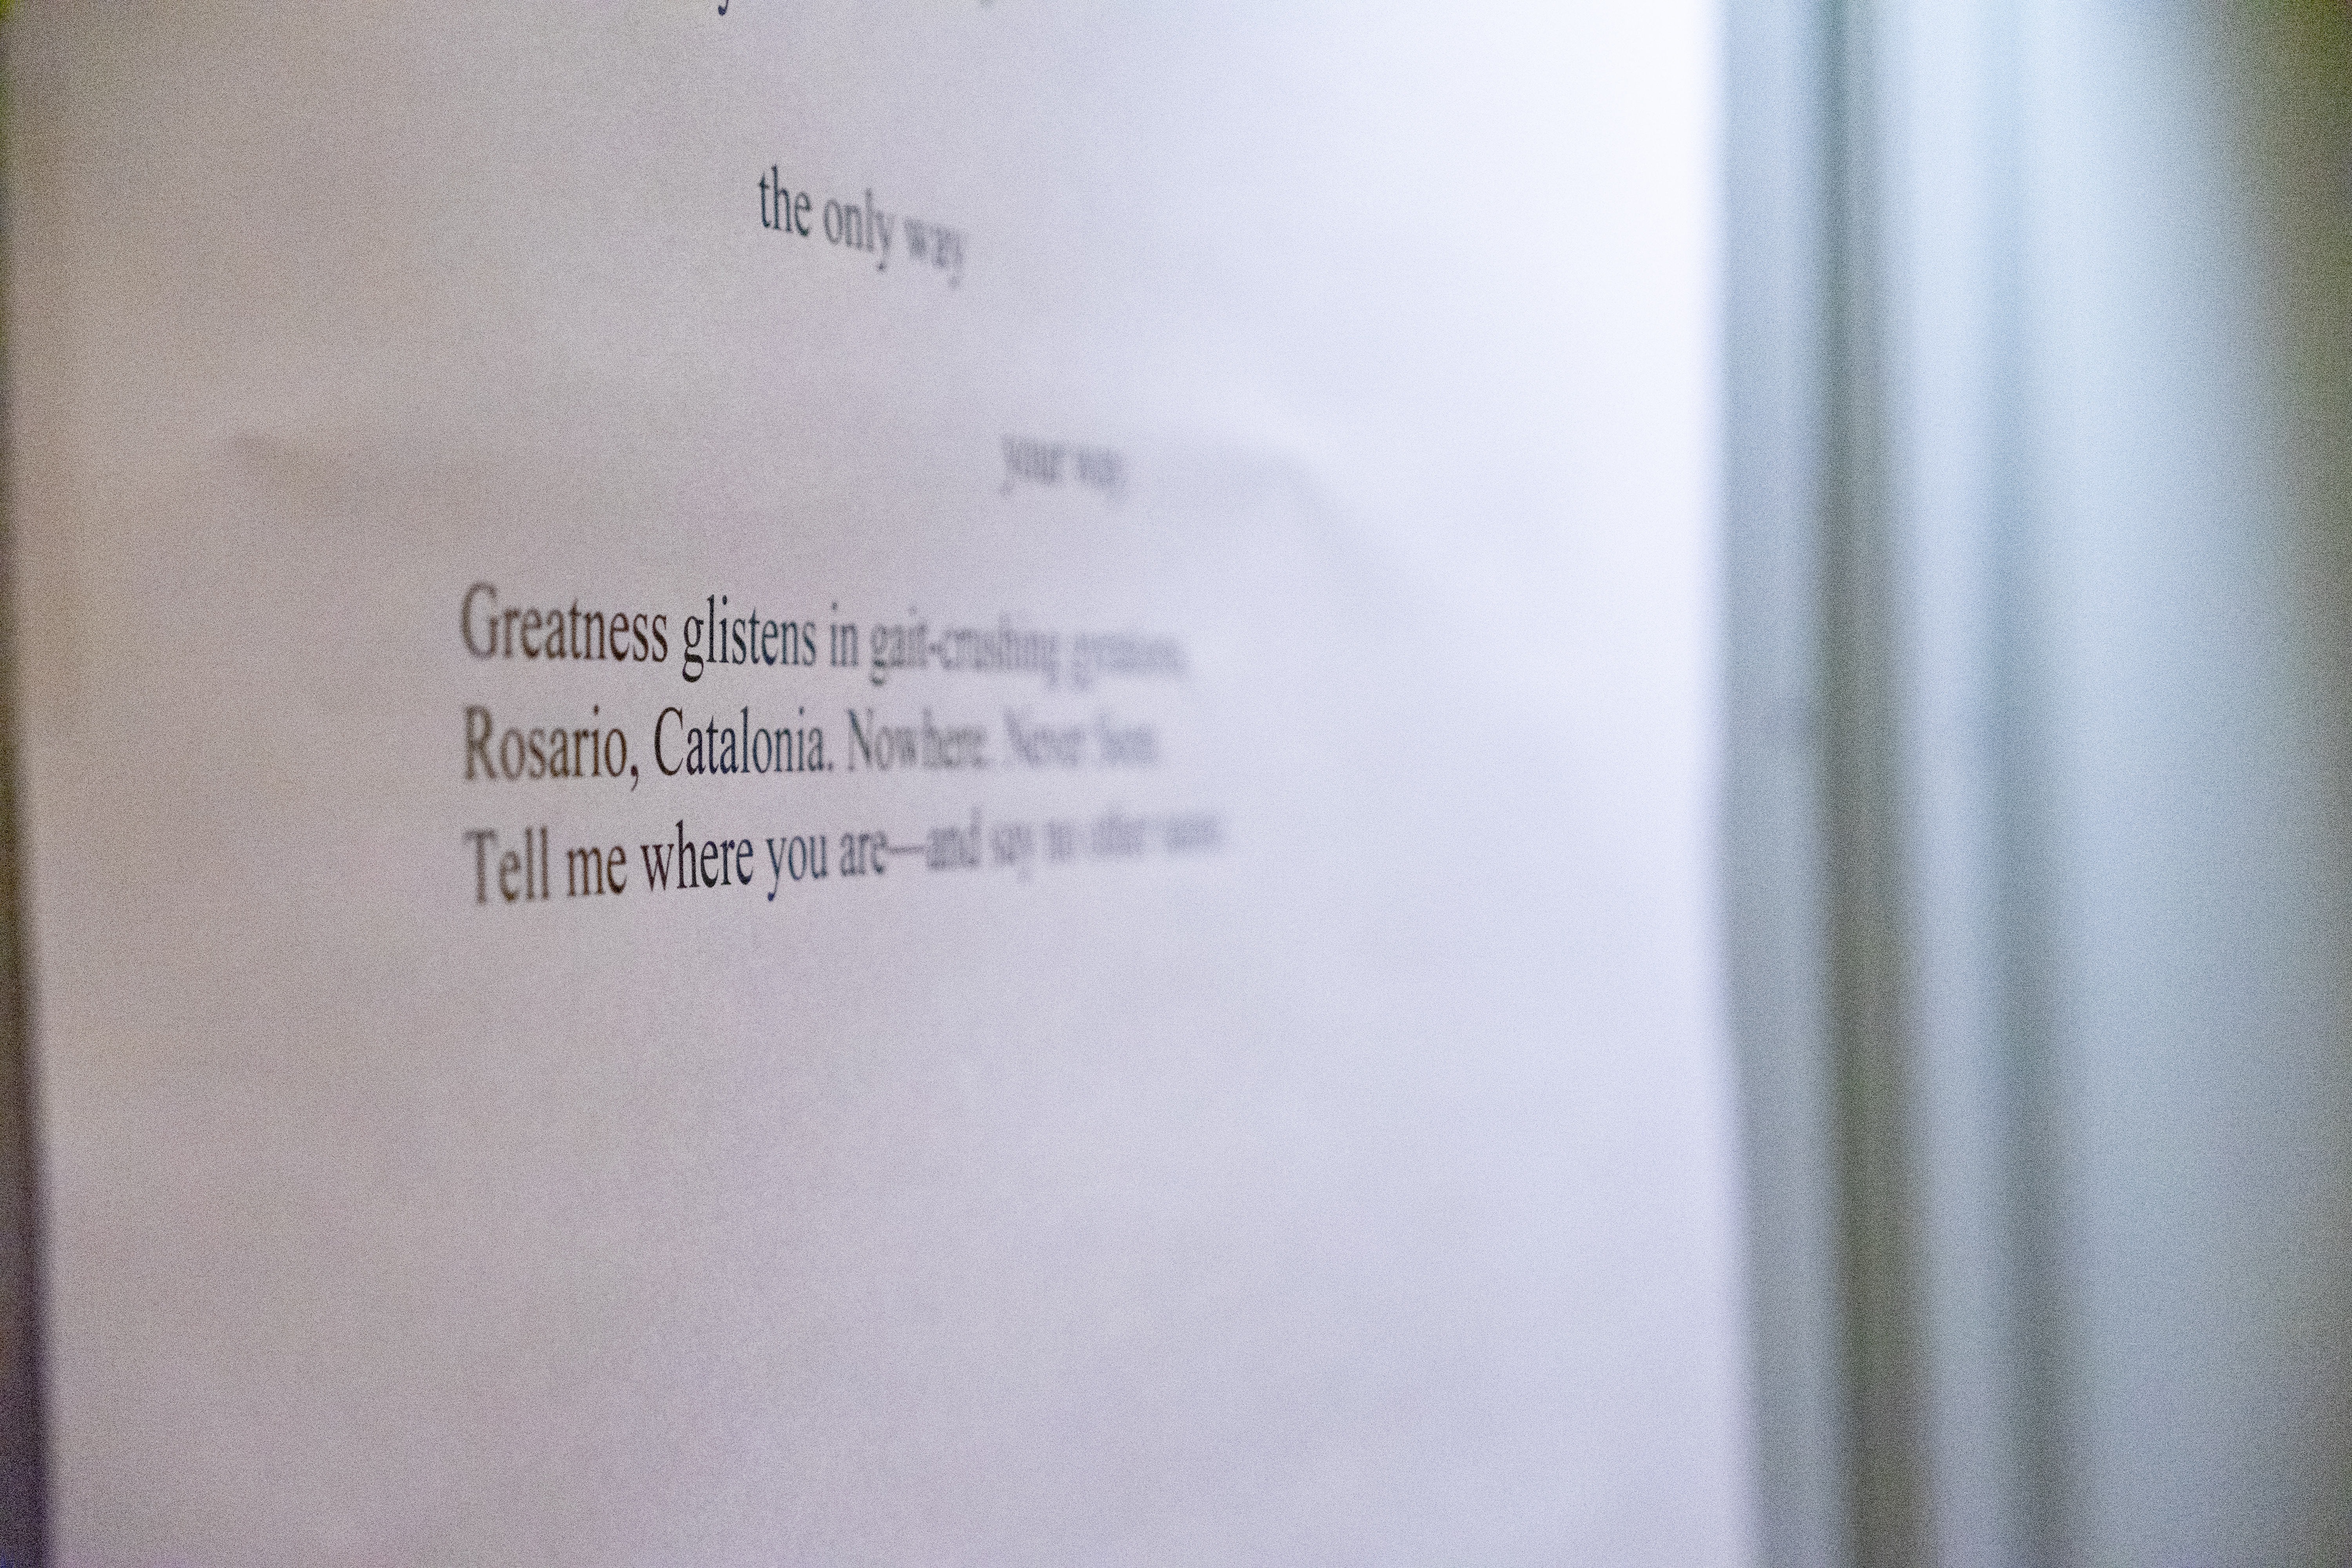 the only way
your way
Greatness glistens in gait-crushing
Rosario, Catalonia. Nowhere. Never
Tell me where you are—and say no other